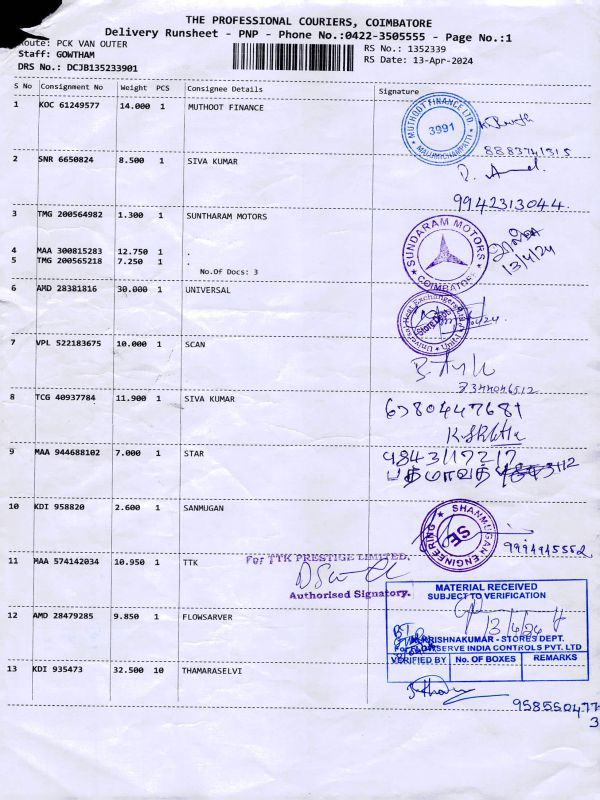 THE PROFESSIONAL COURIERS, COIMBATORE
Delivery Runsheet - PNP - Phone No.:0422-3505555 - Page No.:1
Route: PCK VAN OUTER
RS No.: 1352339
Staff: GOWTHAM
RS Date: 13-Apr-2024
DRS No.: DCJB135233901
S No Consignment No Weight PCS Consignee Details Signature
1 KOC 61249577 14.000 1 MUTHOOT FINANCE
MUTHOOT FINANCE LTD.
3991
8883741315
2 SNR 6650824 8.500 1 SIVA KUMAR
9942313044
3 TMG 200564982 1.300 1 SUNTHARAM MOTORS
SUNDARAM MOTORS
COIMBATORE
13/4/24
4 MAA 300815283 12.750 1 .
5 TMG 200565218 7.250 1 .
No.Of Docs: 3
6 AMD 28381816 30.000 1 UNIVERSAL
Universal Heat Exchangers
Stores Dept.
7 VPL 522183675 10.000 1 SCAN
8 TCG 40937784 11.900 1 SIVA KUMAR
9 MAA 944688102 7.000 1 STAR
10 KDI 958820 2.600 1 SANMUGAN
SHANMUGAN ENGINEERING
SE
11 MAA 574142034 10.950 1 TTK
For TTK PRESTIGE LIMITED.
Authorised Signatory.
MATERIAL RECEIVED
SUBJECT TO VERIFICATION
13/4/24
12 AMD 28479285 9.850 1 FLOWSARVER
KRISHNAKUMAR - STORES DEPT.
For FLOWSERVE INDIA CONTROLS PVT. LTD
VERIFIED BY No. OF BOXES REMARKS
13 KDI 935473 32.500 10 THAMARASELVI
958550477
3